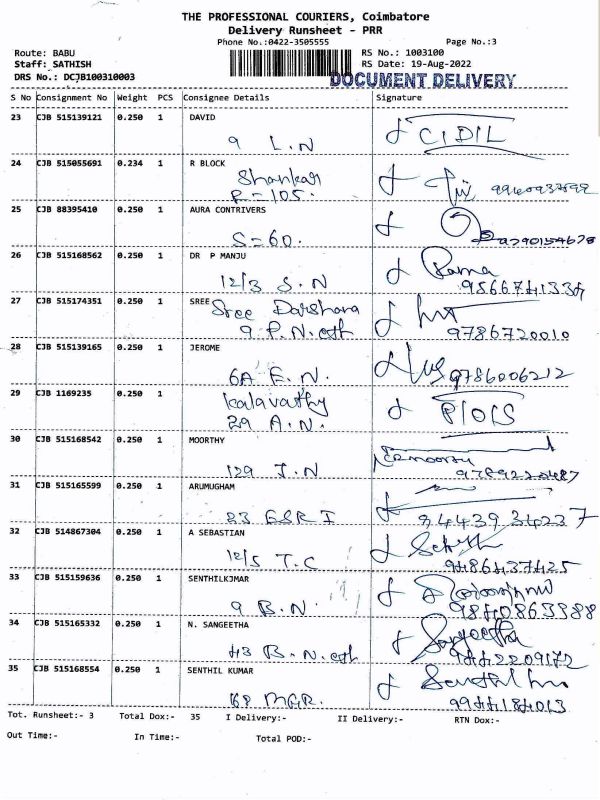 THE PROFESSIONAL COURIERS, Coimbatore
Delivery Runsheet - PRR
Phone No.:0422-3505555 Page No.:3
Route: BABU RS No.: 1003100
Staff: SATHISH RS Date: 19-Aug-2022
DRS No.: DCJB100310003 DOCUMENT DELIVERY
S No Consignment No Weight PCS Consignee Details Signature
23 CJB 515139121 0.250 1 DAVID
9 L.N
24 CJB 515055691 0.234 1 R BLOCK
Shankar
R-105.
25 CJB 88395410 0.250 1 AURA CONTRIVERS
S=60.
26 CJB 515168562 0.250 1 DR P MANJU Rama
12/3 S.N
27 CJB 515174351 0.250 1 SREE Sree Darshana
9 P.N. 9786720010
28 CJB 515139165 0.250 1 JEROME
6A E.N. 9786006212
29 CJB 1169235 0.250 1 Kalavathy
29 A.N.
30 CJB 515168542 0.250 1 MOORTHY
129 J.N
31 CJB 515165599 0.250 1 ARUMUGHAM
23 ESR I 94439 34237
32 CJB 514867304 0.250 1 A SEBASTIAN
12/5 T.C 9486437425
33 CJB 515159636 0.250 1 SENTHILKUMAR
9 B.N.
34 CJB 515165332 0.250 1 N. SANGEETHA Sangeetha
43 B.N. 9442209172
35 CJB 515168554 0.250 1 SENTHIL KUMAR
68 MGR. 9944184013
Tot. Runsheet:- 3 Total Dox:- 35 I Delivery:- II Delivery:- RTN Dox:-
Out Time:- In Time:- Total POD:-